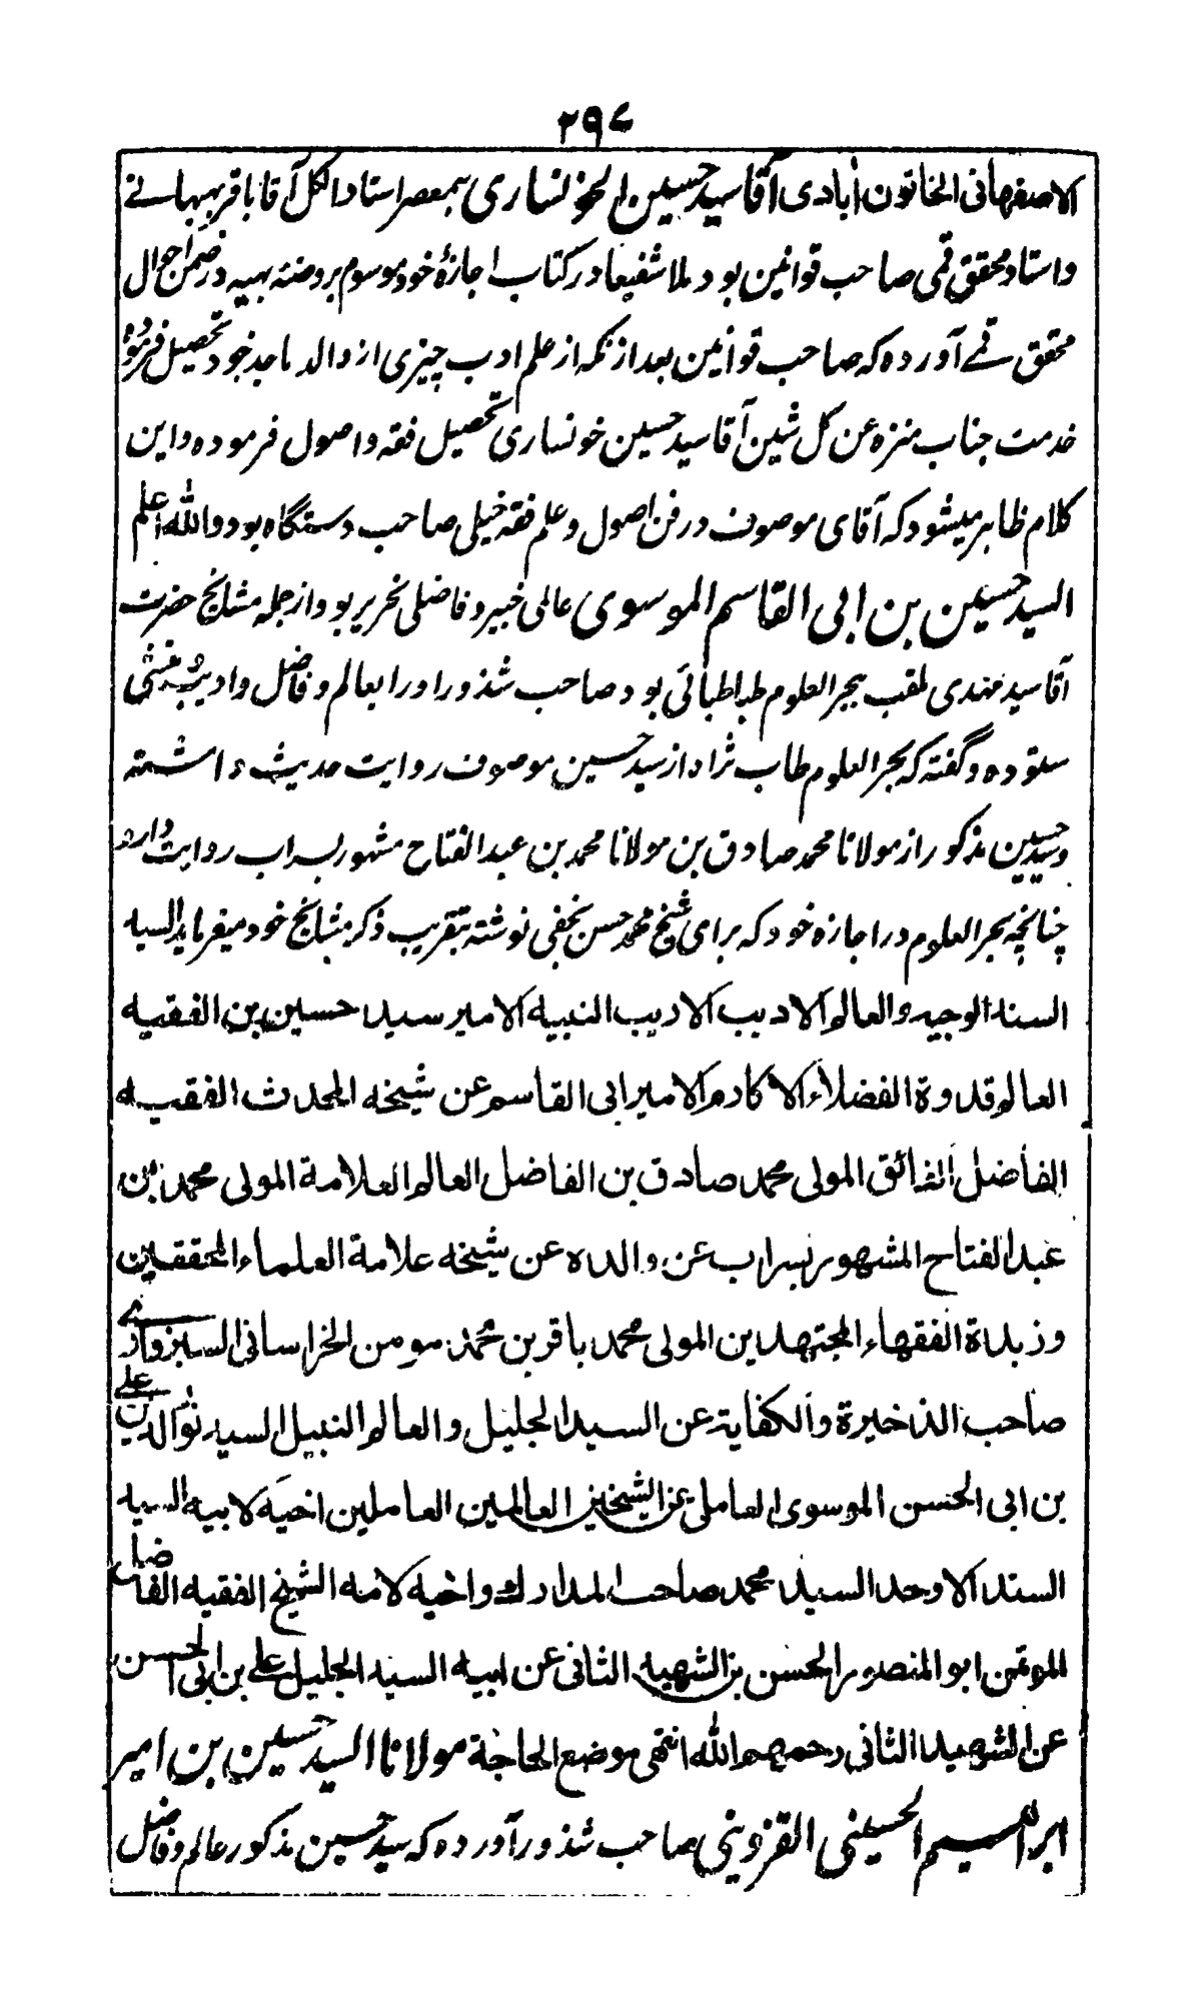 ۲۹۷
الاصفهانی الخاتون آبادی آقا سید حسین الخونساری همعصر استاد الکل آقا باقر بهبهانے
و استاد محقق قمی صاحب قوانین بود ملا شفیعا در کتاب اجازهٔ خود موسوم بروضهٔ بهیه در ضمن احوال
محقق قمے آورده که صاحب قوانین بعد ازنکه از علم ادب چیزی از والد ماجد خود تحصیل فرموده
خدمت جناب منزه عن کل شین آقا سید حسین خونساری تحصیل فقه و اصول فرموده و این
کلام ظاهر میشود که آقای موصوف در فن اصول و علم فقه خیلی صاحب دستگاه بود و الله اعلم
السید حسین بن ابی القاسم الموسوی عالمی خبیر و فاضلی نحریر بود از جمله مشایخ حضرت
آقا سید مهدی ملقب ببحر العلوم طباطبائی بود صاحب شذور او را بعالم و فاضل و ادیب و منشی
ستوده و گفته که بحر العلوم طاب ثراه از سید حسین موصوف روایت حدیث داشته
و سید حسین مذکور از مولانا محمد صادق بن مولانا محمد بن عبد الفتاح مشهور بسراب روایت دارد
چنانچه بحر العلوم در اجازه خود که برای شیخ محمد حسن نجفی نوشته بتقریب ذکر مشایخ خود میفرماید السید
السند الوجیه و العالم الادیب الاریب النبیه الامیر سید حسین بن الفقیه
العالم قدوة الفضلاء الاکارم الامیر ابی القاسم عن شیخه المحدث الفقیه
الفاضل الفائق المولی محمد صادق بن الفاضل العالم العلامة المولی محمد بن
عبد الفتاح المشهور بسراب عن والده عن شیخه علامة العلماء المحققین
و زبدة الفقهاء المجتهدین المولی محمد باقر بن محمد مومن الخراسانی السبزواری
صاحب الذخیرة و الکفایة عن السید الجلیل و العالم النبیل السید نور الدین علی
بن ابی الحسن الموسوی العاملی عن الشیخین العالمین العاملین اخیه لابیه السید
السند الاوحد السید محمد صاحب المدارک و اخیه لامه الشیخ الفقیه الفاضل
الموتمن ابو المنصور الحسن بن الشهید الثانی عن ابیه السید الجلیل علی بن ابی الحسن
عن الشهید الثانی رحمهم الله انتهی موضع الحاجة مولانا السید حسین بن امیر
ابراهیم الحسینی القزوینی صاحب شذور آورده که سید حسین مذکور عالم و فاضل